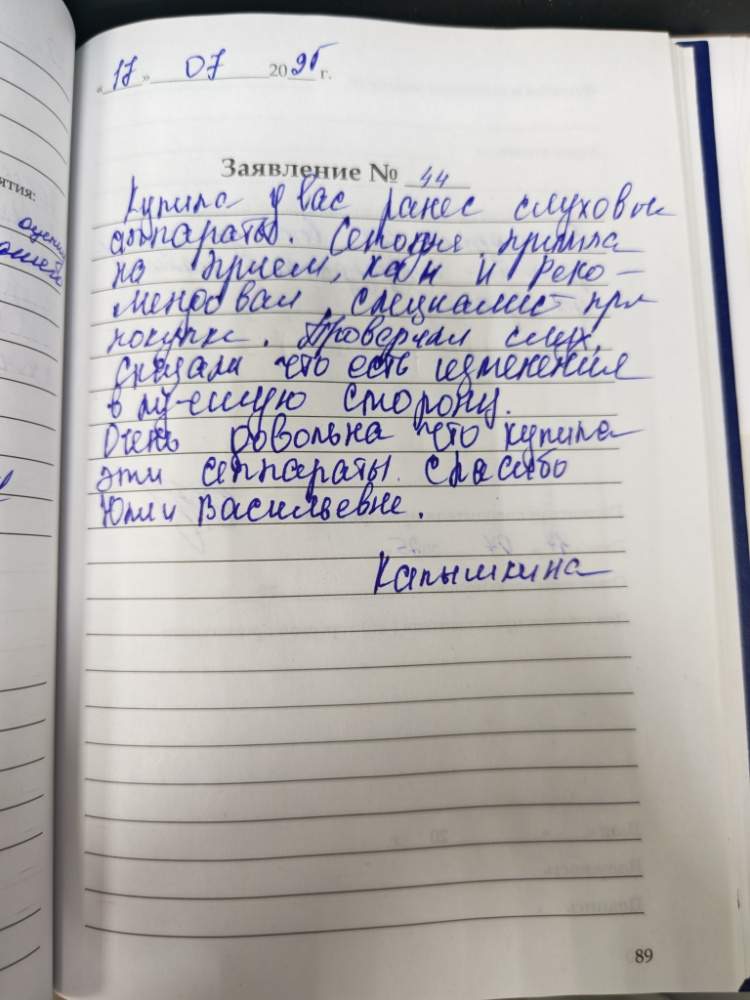 «17» 07 2025 г.
Заявление № 44
Купила у вас ранее слуховые
аппараты. Сегодня пришла
на прием, как и реко-
мендовал специалист при
покупке. Проверили слух,
сказали что есть изменения
в лучшую сторону.
Очень довольна что купила
эти аппараты. Спасибо
Юлии Васильевне.
Капышкина
89
ятия:
оценк